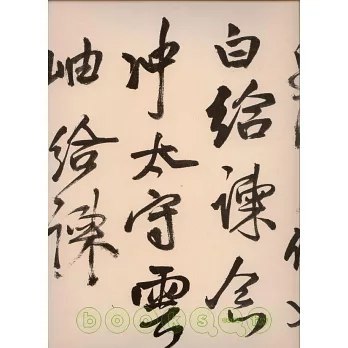 白給諫念
沖太守雲
岫給諫
books.com